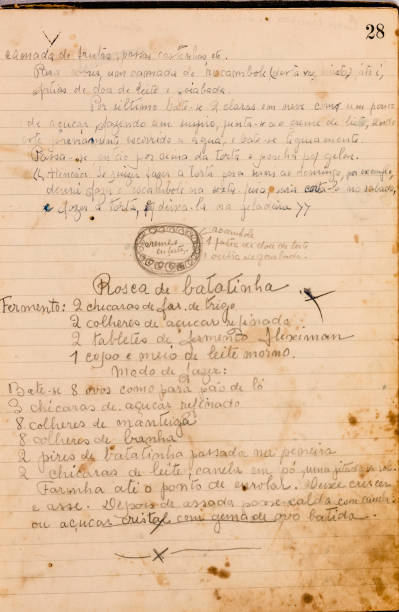 28
camada de frutas, passas castanhas, etc.
Por cima uma camada de rocambole
fatias de doce de leite e goiabada.
Por último bate-se 2 claras em neve com um pouco
de açucar, fazendo um suspiro, junta-se o creme de leite, sendo
este préviamente escorrido a agua, e bate-se ligeiramente.
Passa-se então por cima da torta e ponha p/ gelar.
(Atenção: Se quizer fazer a torta para no domingo, por exemplo,
deverá fazer o rocambole na sexta feira, para cortá-lo no sabado,
e fazer a torta, e deixá-la na geladeira))
creme e
enfeites
rocambole
1 fatia de doce de leite
1 outra de goiabada
Rosca de batatinha
Fermento: 2 chicaras de far. de trigo
2 colheres de açucar refinado
2 tabletes de fermento Fleximan
1 copo e meio de leite morno.
Modo de fazer:
Bate-se 8 ovos como para pão de ló
3 chicaras de açucar refinado
8 colheres de manteiga
8 colheres de banha
2 pires de batatinha passada na peneira
2 chicaras de leite, canela em pó, uma pitada de sal.
Farinha até o ponto de enrolar. Deixe crescer
e asse. Depois de assada passe calda com
ou açucar cristal com gema de ovo batida.